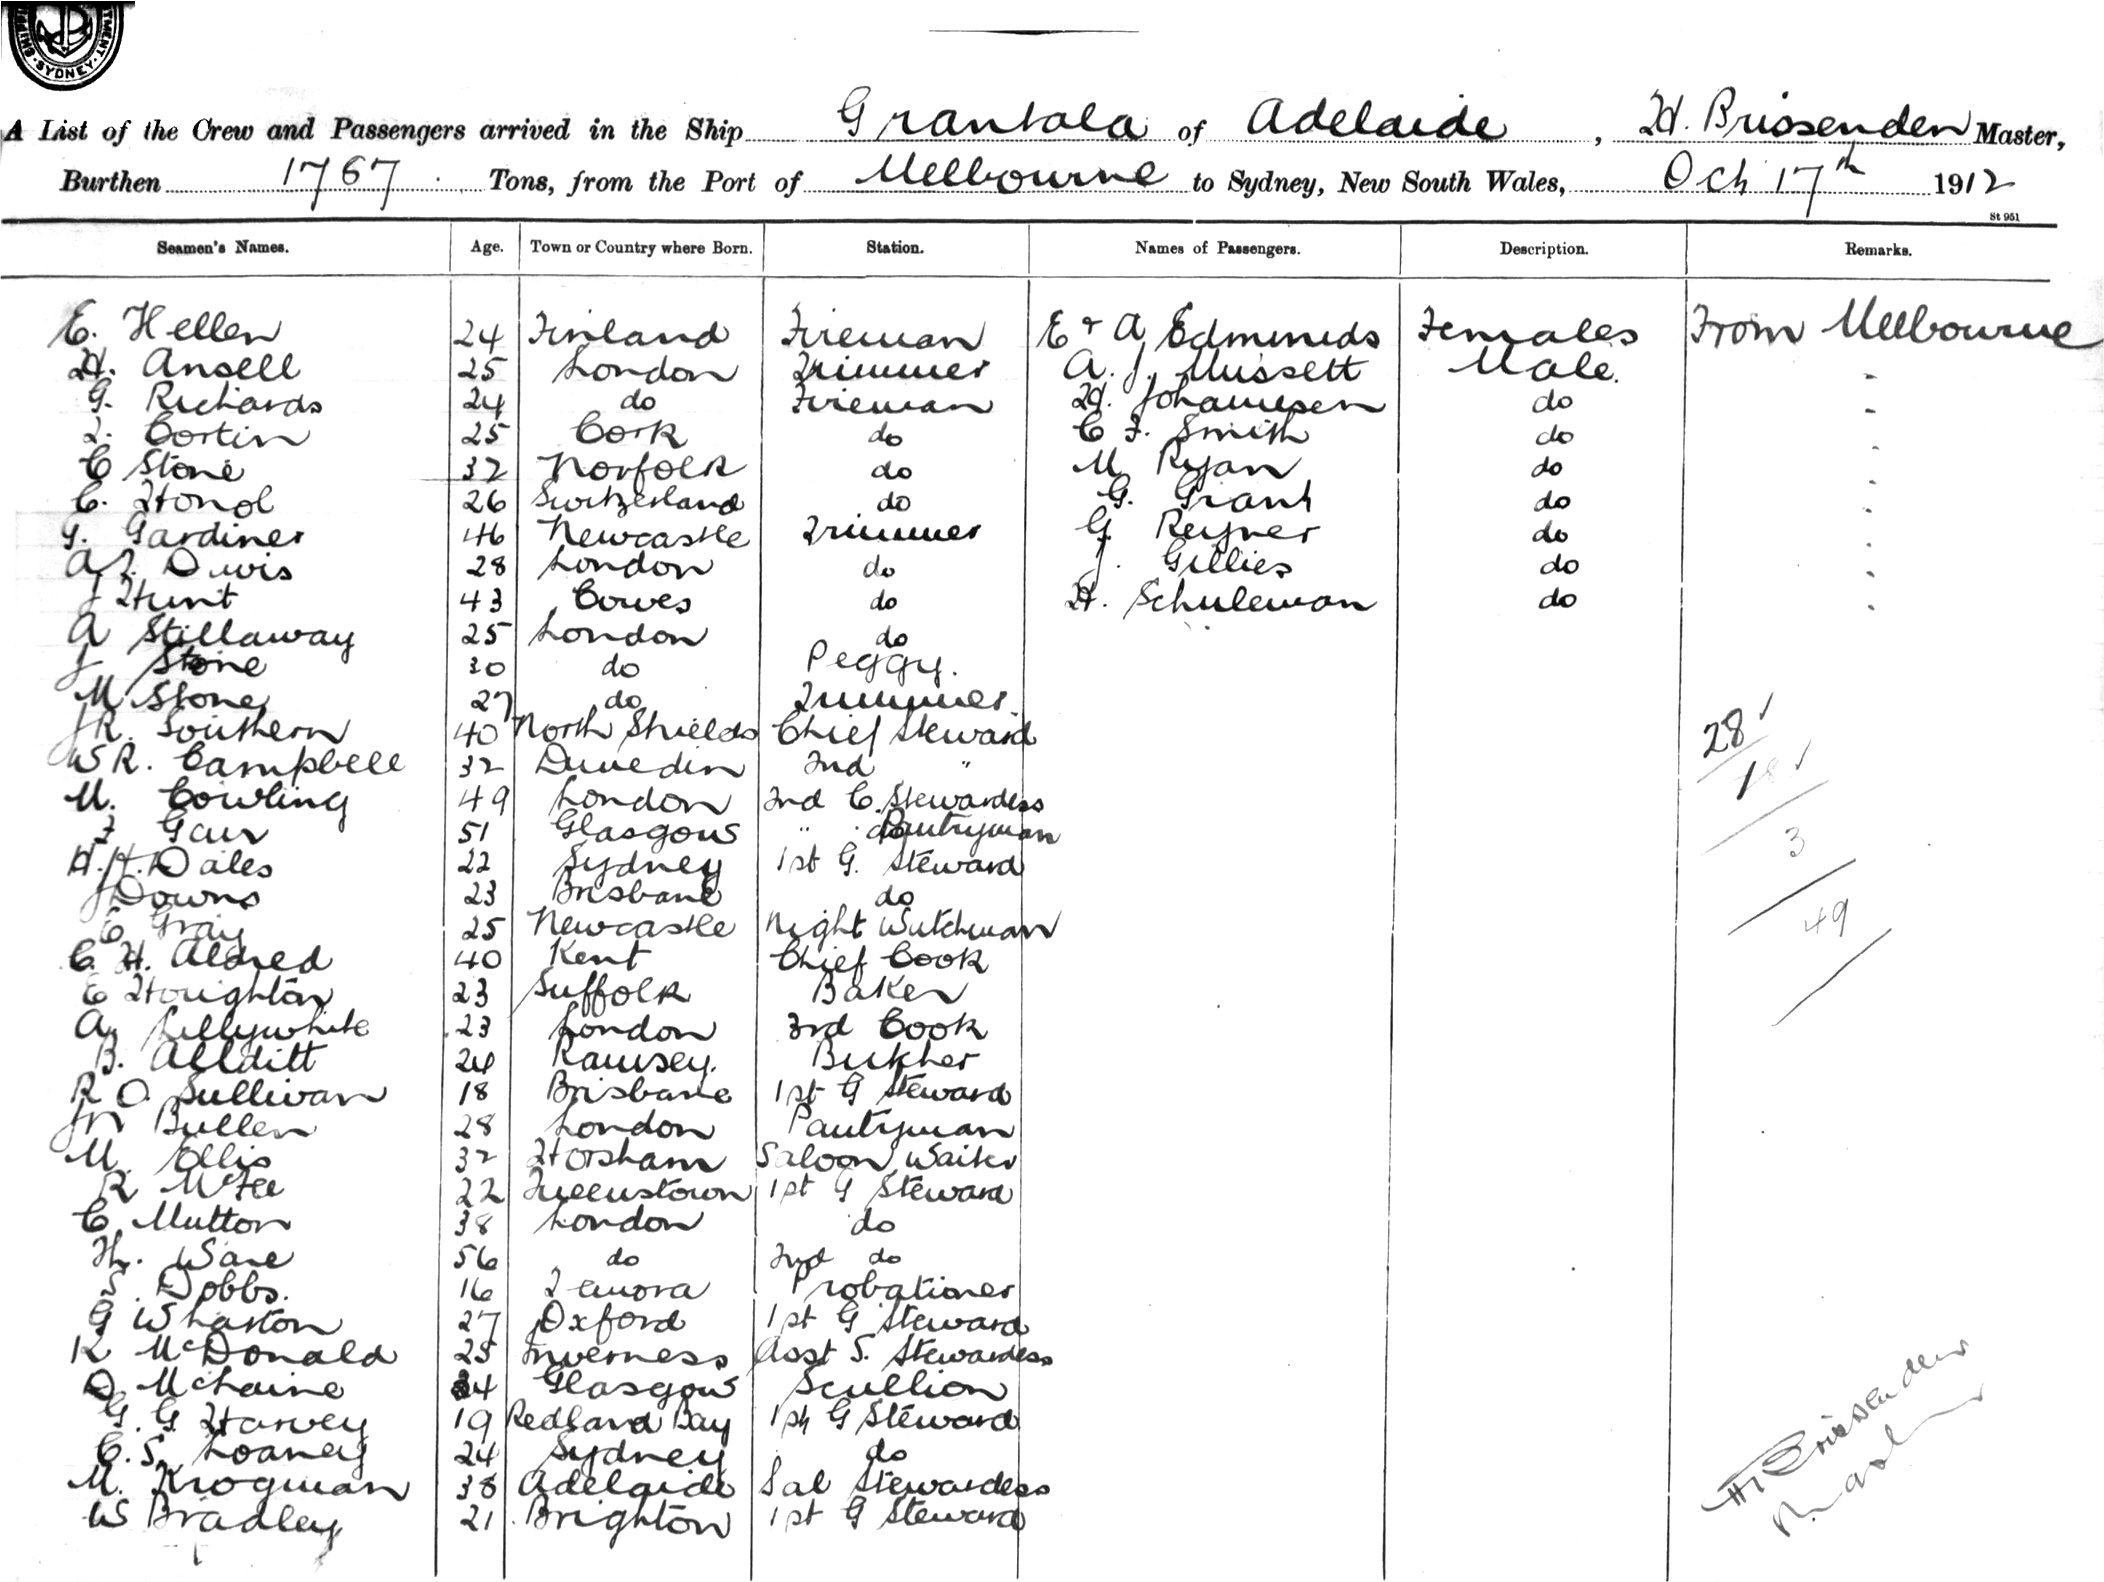 SYDNEY
A List of the Crew and Passengers arrived in the Ship Grantala of Adelaide, H. Brissenden Master,
Burthen 1767 Tons, from the Port of Melbourne to Sydney, New South Wales, Oct 17th 1912
St 951
Seamen's Names. Age. Town or Country where Born. Station. Names of Passengers. Description. Remarks.
E. Hellen 24 Finland Fireman E & A Edmunds Females From Melbourne
H. Ansell 25 London Trimmer A. J. Mussett Male. "
G. Richards 24 do Fireman H. Johannesen do "
T. Cortin 25 Cork do C F. Smith do "
C Stone 32 Norfolk do M Ryan do "
C. Honol 26 Switzerland do G. Grant do "
G. Gardiner 46 Newcastle Trimmer G. Reyner do "
A T. Duvis 28 London do J. Gillies do "
J Hunt 43 Cowes do H. Schuleman do "
A Stillaway 25 London do
J Stone 30 do Peggy.
M Stone 27 do Trimmer.
J R. Southern 40 North Shields Chief Steward 28
W R. Campbell 32 Dunedin 2nd " 18
M. Cowling 49 London 2nd C. Stewardess
F Gair 51 Glasgow " do Pantryman 3
H. H. Dales 22 Sydney 1st G. Steward
J Downs 23 Brisbane do
C Gray 25 Newcastle Night Watchman 49
C. H. Aldred 40 Kent Chief Cook
E Houghton 23 Suffolk Baker
A Lillywhite 23 London 3rd Cook
B. Allditt 24 Ramsey. Butcher
R O. Sullivan 18 Brisbane 1st G Steward
Bullen 28 London Pantryman
M. Ellis 32 Horsham Saloon Waiter
R McFee 22 Queenstown 1st G Steward
C Mutton 38 London do
Th. Ware 56 do 2nd do
S. Dobbs. 16 Temora Probationer
G Wharton 27 Oxford 1st G Steward
K McDonald 25 Inverness Asst S. Stewardess
D McLaine 34 Glasgow Scullion
G. G Harvey 19 Redland Bay 1st G Steward
C. S. Loaney 24 Sydney do
M. Krogman 38 Adelaide Sal Stewardess
W Bradley 21 Brighton 1st G Steward
H Brissenden
Mast